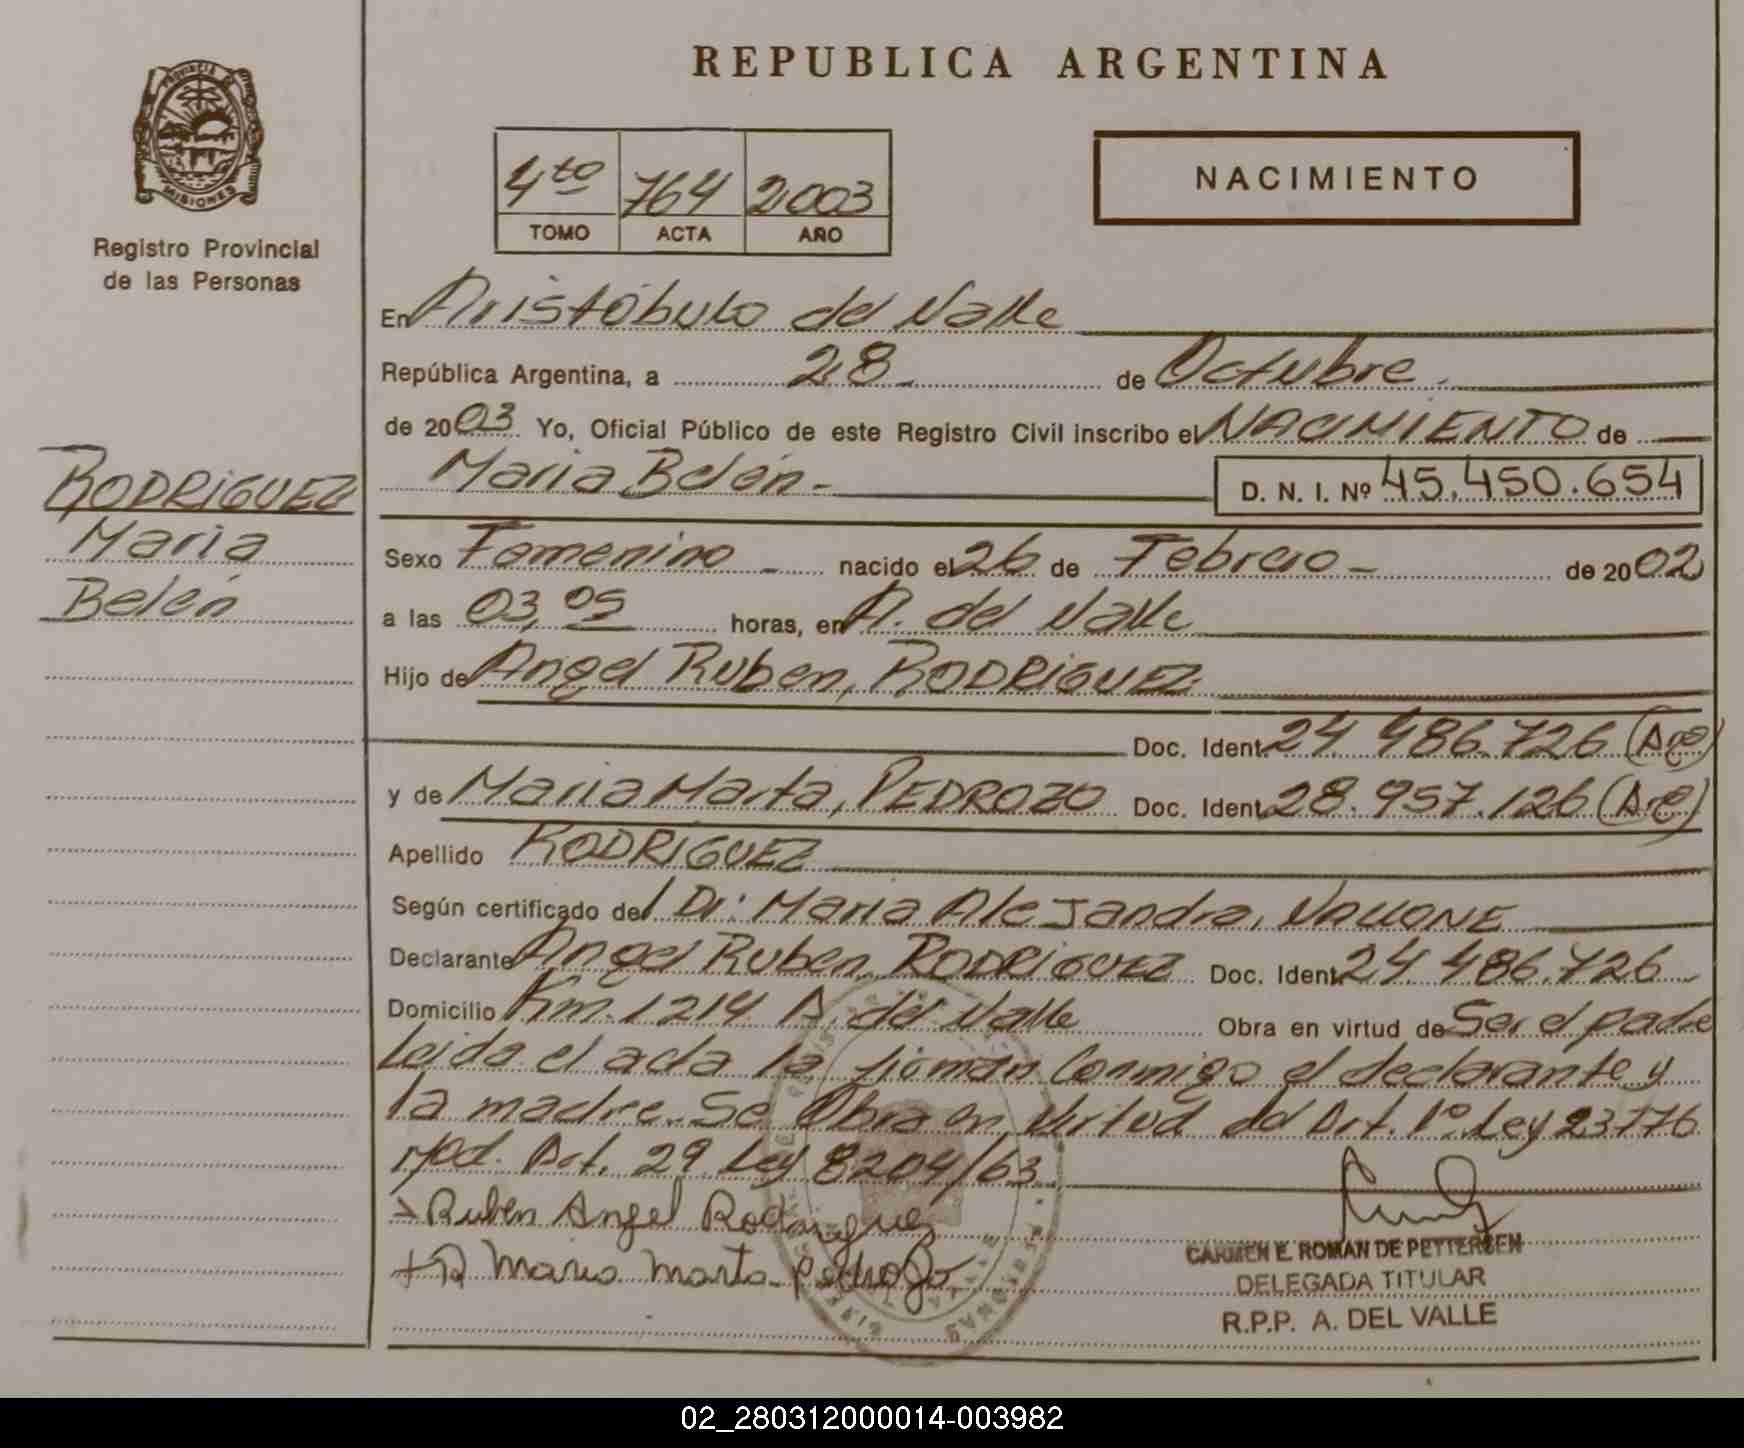 REPUBLICA ARGENTINA
PROVINCIA DE
MISIONES
Registro Provincial
de las Personas
4to 764 2003
TOMO ACTA AÑO
NACIMIENTO
En Aristóbulo del Valle
República Argentina, a 28 de Octubre.
de 2003. Yo, Oficial Público de este Registro Civil inscribo el NACIMIENTO de
Maria Belén.-
D. N. I. Nº 45.450.654
RODRIGUEZ
Maria
Belén
Sexo Femenino - nacido el 26 de Febrero - de 2002
a las 03,05 horas, en A. del Valle
Hijo de Angel Ruben, RODRIGUEZ
Doc. Ident. 24 486.726 (Arg)
y de Maria Marta, PEDROZO Doc. Ident. 28.957.126 (Arg)
Apellido RODRIGUEZ
Según certificado del Dr: Maria Alejandra,
Declarante Angel Ruben, RODRIGUEZ Doc. Ident. 24 486.726
Domicilio Km. 1214 A. del Valle Obra en virtud de Ser el padre
Leida el acta la firman Conmigo el declarante y
la madre. Se Obra en virtud del Art. 1º Ley 23776
Mod. Art. 29 Ley 8204/63
Ruben Angel Rodriguez
Maria Marta Pedrozo
CARMEN E. ROMAN DE PETTERSEN
DELEGADA TITULAR
R.P.P. A. DEL VALLE
02_280312000014-003982